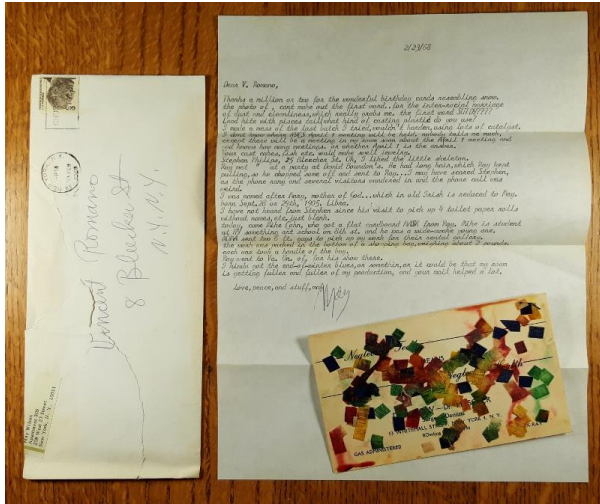 Vincent Romano
8 Bleecker St
N.Y.
New York, N. Y. 10011
2/23/68
Dear V. Romano,
Thanks a million or two for the wonderful birthday cards resembling snow.
the photo of , cant make out the first word..
of dust and cleanliness, which really grabs me, the first word
what kind of casting plastic do you use?
I made a mess of the last batch I tried, wouldn't harden, using lots of catalyst.
except there will be a meeting in my room soon about the April 1 meeting and
god knows how many meetings.. whether April 1 is the answer.
Your cast cubes, fish etc will make swell jewelry.
Stephen Philips, 25 Bleecker St. Oh, I liked the little skeleton.
Ray met " at a party at David Bourdon's. He had long hair, which Ray kept
pulling, so he chopped some off and sent to Ray... I may have scared Stephen,
as the phone rang and several visitors wandered in and the phone call was
weird.
I was named after Mary, mother of God... which in old Irish is reduced to May.
born Sept. 28 or 29th, 1905, Libra.
I have not heard from Stephen since his visit to pick up 4 toilet paper rolls
without names, etc. just blank.
today, came Mike Cohn, who got a flat cardboard from Ray. Mike is student
at art school on 6th st. and he saw a awake young one.
sent two 6 ft. guys to pick up my work for their rental gallery.
the work was mashed in the bottom of a shopping bag, weighing about 2 pounds.
each one took a handle of the bag.
Ray went to Va. Un. of, for his show there.
I think its got the end-of-winter blues, or somethin, or it could be that my room
is getting fuller and fuller of my production, and your mail helped a lot.
Love, peace, and stuff,
May
Neglected
Neglected Health
13 WHITEHALL STREET NEW YORK 4, N. Y.
GAS ADMINISTERED